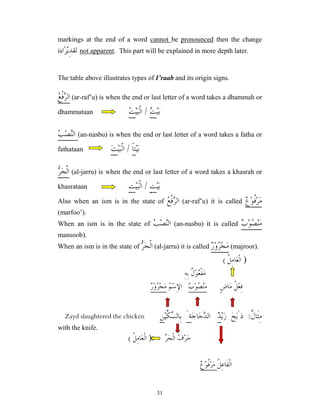 markings at the end of a word cannot be pronounced then the change
is تَقْدِيْرًا not apparent. This part will be explained in more depth later.
The table above illustrates types of I’raab and its origin signs.
الرَّفْعُ (ar-raf’u) is when the end or last letter of a word takes a dhammah or
dhammataan بَيْتٌ / الْبَيْتُ
النَّصْبُ (an-nasbu) is when the end or last letter of a word takes a fatha or
fathataan بَيْتًا / الْبَيْتَ
الْجَرُّ (al-jarru) is when the end or last letter of a word takes a khasrah or
khasrataan بَيْتٍ / الْبَيْتِ
Also when an ism is in the state of الرَّفْعُ (ar-raf’u) it is called مَرْفُوْعٌ
(marfoo’).
When an ism is in the state of النَّصْبُ (an-nasbu) it is called مَنْصُوْبٌ
mansoob).
When an ism is in the state of الْجَرُّ (al-jarru) it is called مَجْرُوْرٌ (majroor).
( الْعَامِلُ )
مَفْعُوْلٌ بِهِ
فِعْلٌ مَاضٍ مَنْصُوْبٌ الإِسْمُ مَجْرُوْرٌ
مِثَالٌ: ذَبَحَ زَيْدٌ الدَّجَاجَةَ بِالسِّكِّيْنِ Zayd slaughtered the chicken
with the knife.
حَرْفُ الْجَرِّ ( الْعَامِلُ )
الْفَاعِلُ مَرْفُوْعٌ
31